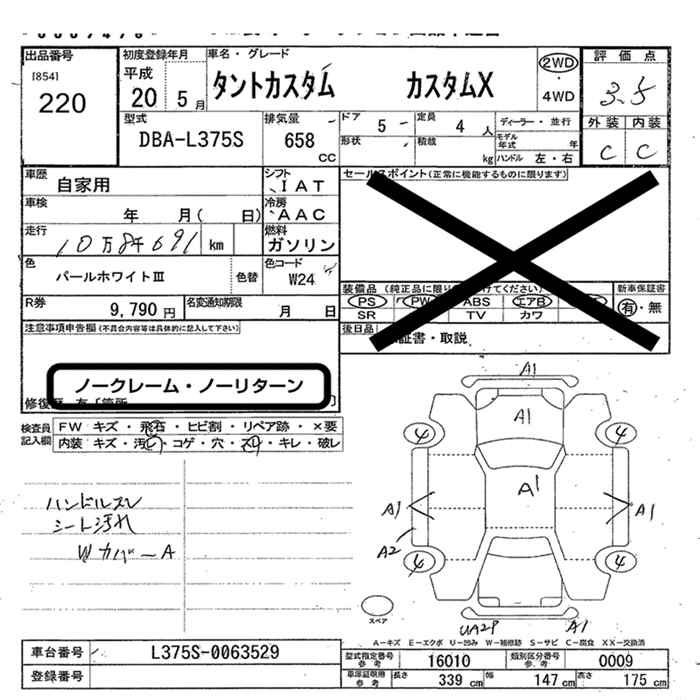 出品番号
[854]
220
初度登録年月
平成
20 5月
車名・グレード
タントカスタム カスタムX
2WD
4WD
評価点
3.5
外装 内装
C C
型式
DBA-L375S
排気量
658 CC
ドア
5
定員
4 人
形状
積載 kg
ディーラー・並行
モデル年式 年
ハンドル 左・右
車歴
自家用
シフト
IAT
車検
年 月( 日)
冷房
AAC
走行
10万8千691 km
燃料
ガソリン
色
パールホワイトIII
色替
色コード
W24
R券
9,790円
名変通知期限
月 日
セールスポイント(正常に機能するものに限ります)
PS PW ABS エアB
SR TV カワ
新車保証書
有・無
後日品
証書・取説
注意事項申告欄(不具合内容等は具体的に記入して下さい)
ノークレーム・ノーリターン
検査員記入欄
FW キズ・飛石・ヒビ割・リペア跡・×要
内装 キズ・汚れ・コゲ・穴・スレ・キレ・破レ
ハンドルスレ
シート汚れ
Wカバ-A
A1
A1
4 4
A1
A1 A1
A2
4 4
スペア
UA2P A1
A-キズ E-エクボ U-凹み W-補修跡 S-サビ C-腐食 XX-交換済
車台番号
L375S-0063529
登録番号
型式指定番号 参考
16010
類別区分番号 参考
0009
車庫証明用 参考
長さ 339 cm
幅 147 cm
高さ 175 cm